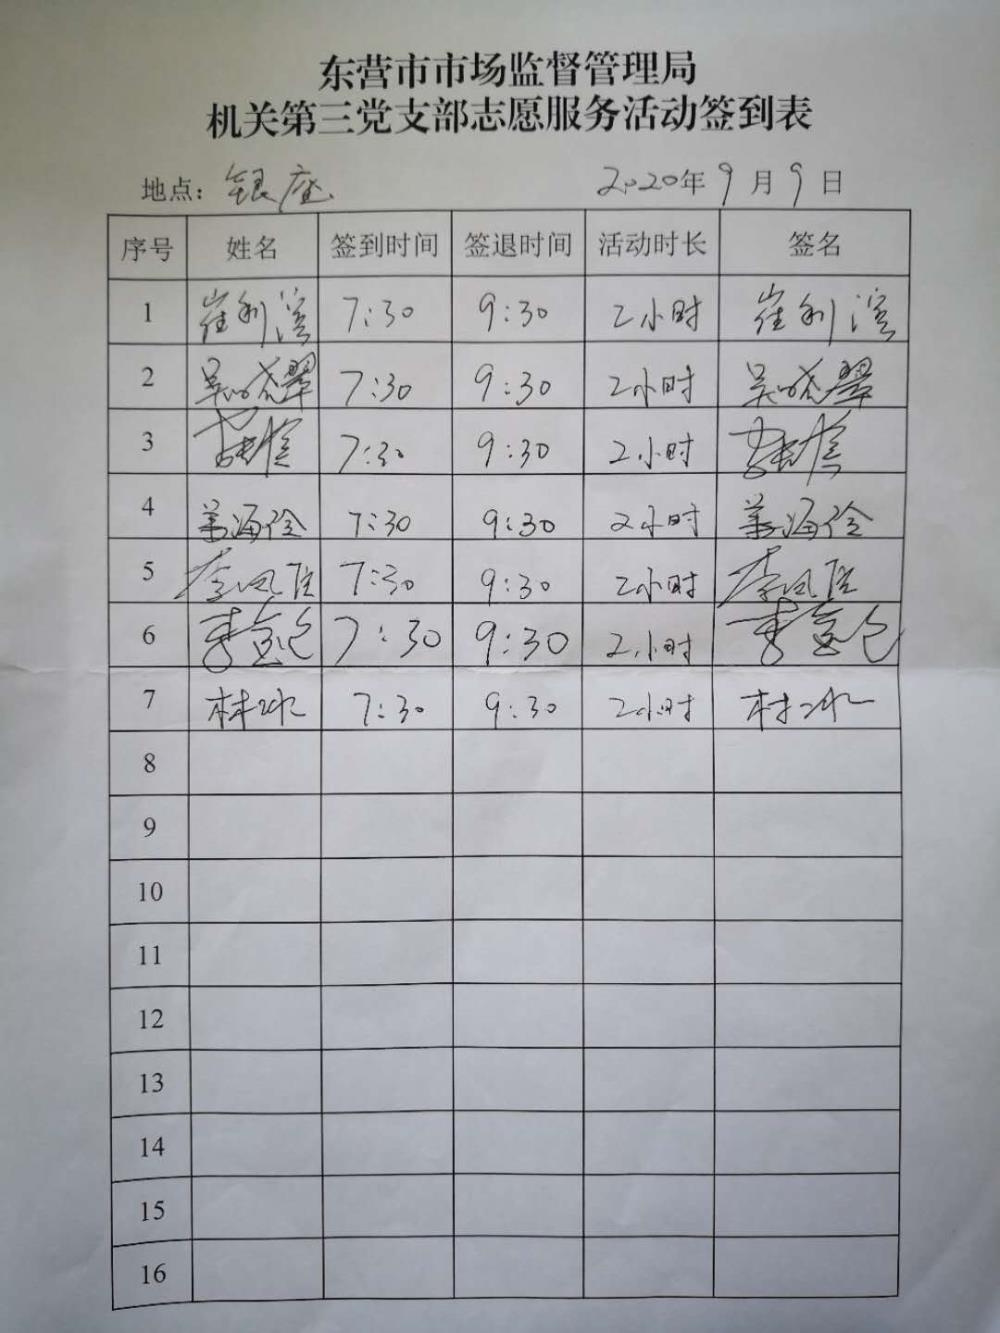 东营市市场监督管理局
机关第三党支部志愿服务活动签到表
地点：银座 2020年9月9日
序号 姓名 签到时间 签退时间 活动时长 签名
1 崔利滨 7:30 9:30 2小时 崔利滨
2 吴晓翠 7:30 9:30 2小时 吴晓翠
3 7:30 9:30 2小时
4 7:30 9:30 2小时
5 7:30 9:30 2小时
6 7:30 9:30 2小时
7 林冰 7:30 9:30 2小时 林冰
8
9
10
11
12
13
14
15
16